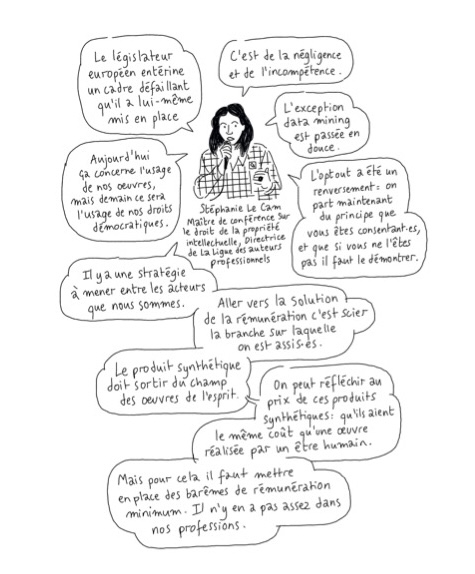 Le législateur
européen entérine
un cadre défaillant
qu'il a lui-même
mis en place
C'est de la négligence
et de l'incompétence.
L'exception
data mining
est passée en
douce.
Aujourd'hui
ça concerne l'usage
de nos oeuvres,
mais demain ce sera
l'usage de nos droits
démocratiques.
L'optout a été un
renversement: on
part maintenant
du principe que
vous êtes consentant·es,
et que si vous ne l'êtes
pas il faut le démontrer.
Stéphanie Le Cam
Maître de conférence sur
le droit de la propriété
intellectuelle, Directrice
de la Ligue des auteurs
professionnels
Il y a une stratégie
à mener entre les acteurs
que nous sommes.
Aller vers la solution
de la rémunération c'est scier
la branche sur laquelle
on est assis·es.
Le produit synthétique
doit sortir du champ
des oeuvres de l'esprit.
On peut réfléchir au
prix de ces produits
synthétiques: qu'ils aient
le même coût qu'une œuvre
réalisée par un être humain.
Mais pour cela il faut mettre
en place des barêmes de rémunération
minimum. Il n'y en a pas assez dans
nos professions.